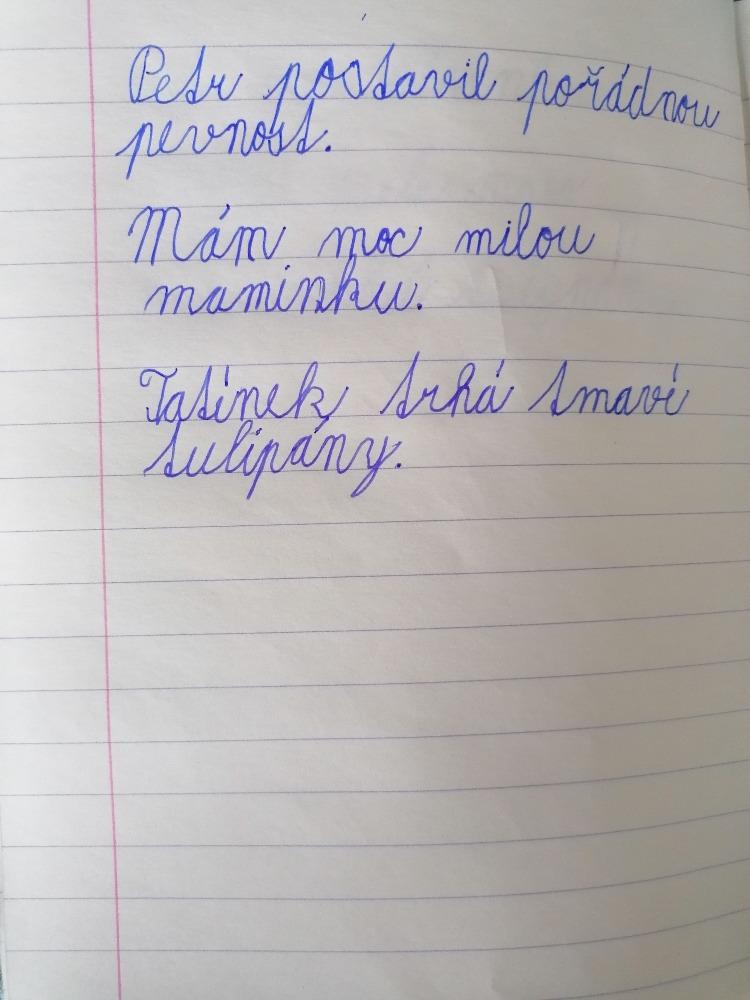 Petr postavil pořádnou
pevnost.
Mám moc milou
maminku.
Tatínek trhá tmaví
tulipány.